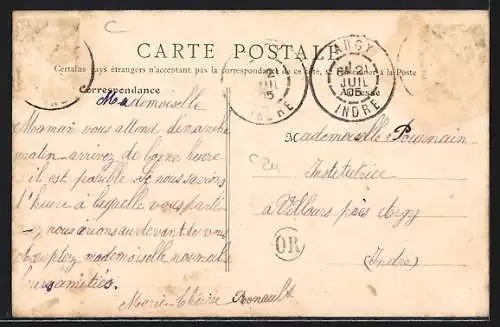 CARTE POSTALE
Certains pays étrangers n'acceptant pas la correspondance de ce côté, se renseigner à la Poste
Correspondance
Adresse
ARGY
21
JUIL
05
INDRE
21
JUIL
05
INDRE
Mademoiselle
Maman vous attend dimanche
matin arrivez de bonne heure
s'il est possible Si nous savions
l'heure à laquelle vous
nous irions au devant de vous
mademoiselle nos meill
amitiés
Marie-Thérèse Renault
Mademoiselle
Institutrice
à Villours près Argy
(Indre)
OR